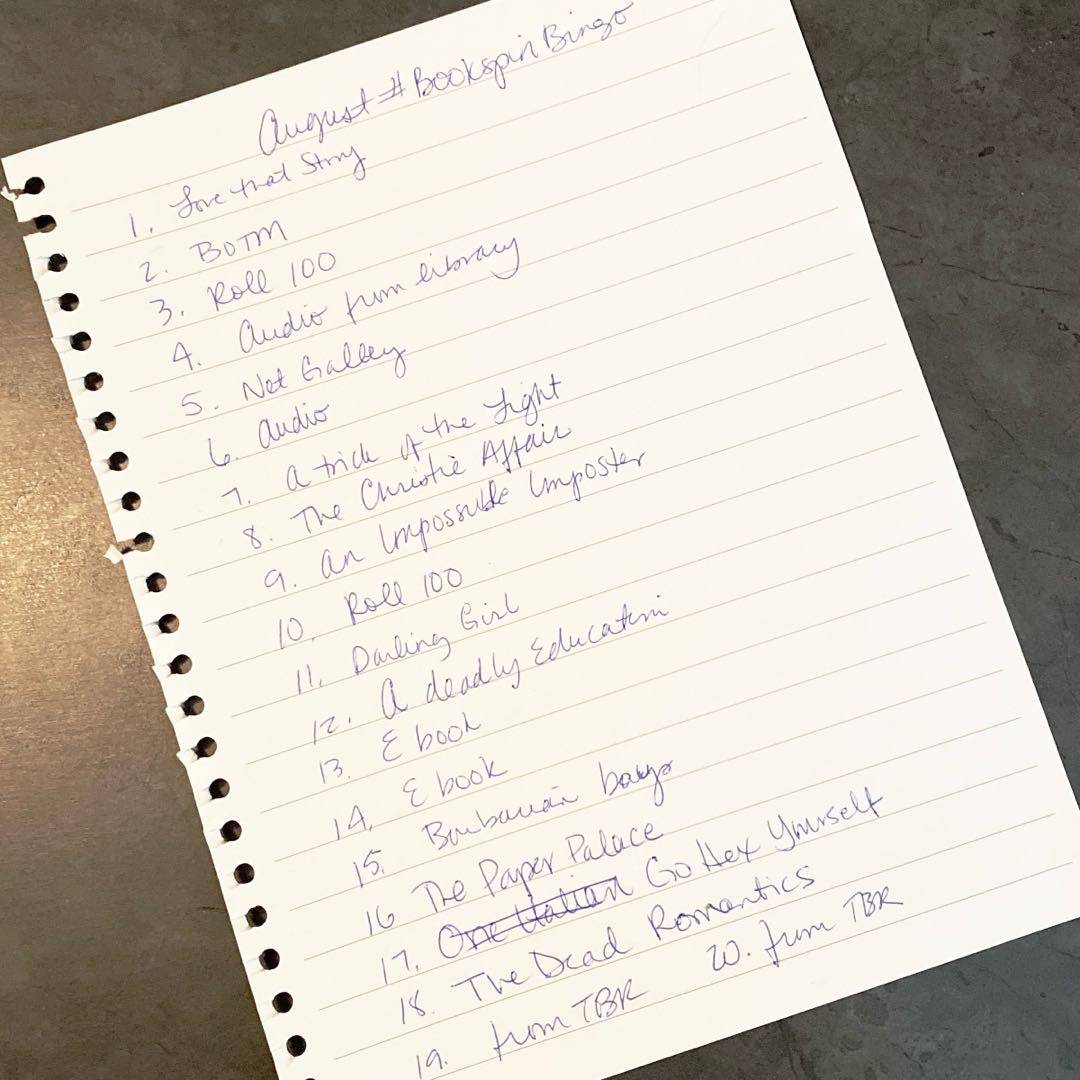 August #BookspinBingo
1. Love that Story
2. BOTM
3. Roll 100
4. Audio from library
5. Net Galley
6. Audio
7. A trick of the Light
8. The Christie Affair
9. An Impossible Imposter
10. Roll 100
11. Darling Girl
12. A deadly Education
13. E book
14. E book
15. Barbarian
16 The Paper Palace
17. One Italian Go Hex Yourself
18. The Dead Romantics
19. from TBR 20. from TBR